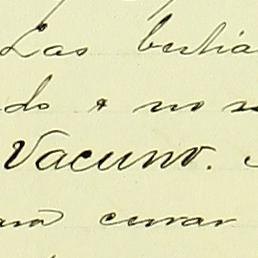 Las bestia
do & no s
Vacuno.
ara cerrar